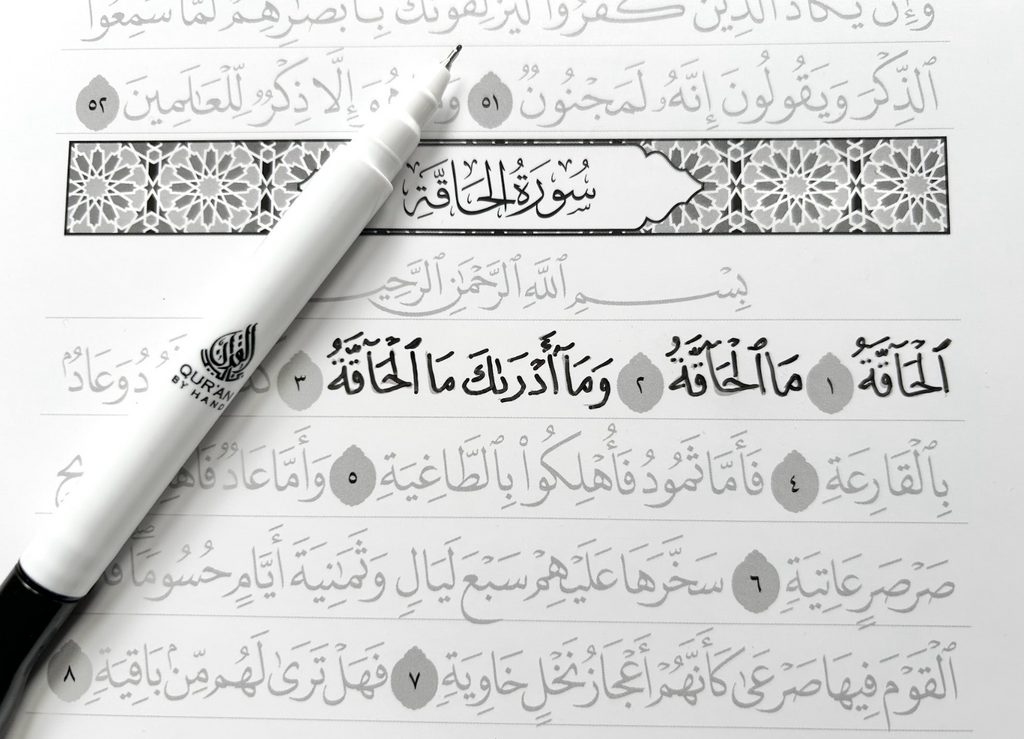 وَإِن يَكَادُ الَّذِينَ كَفَرُوا لَيُزْلِقُونَكَ بِأَبْصَارِهِمْ لَمَّا سَمِعُوا
ٱلذِّكْرَ وَيَقُولُونَ إِنَّهُۥ لَمَجْنُونٌ ٥١ هُوَ إِلَّا ذِكْرٌ لِّلْعَـٰلَمِينَ ٥٢
سُورَةُ الحَاقَّةِ
بِسْمِ ٱللَّهِ ٱلرَّحْمَـٰنِ ٱلرَّحِي
ٱلْحَآقَّةُ ١ مَا ٱلْحَآقَّةُ ٢ وَمَآ أَدْرَىٰكَ مَا ٱلْحَآقَّةُ ٣ دُ وَعَادٌۢ
بِٱلْقَارِعَةِ ٤ فَأَمَّا ثَمُودُ فَأُهْلِكُوا۟ بِٱلطَّاغِيَةِ ٥ وَأَمَّا عَادٌ
صَرْصَرٍ عَاتِيَةٍ ٦ سَخَّرَهَا عَلَيْهِمْ سَبْعَ لَيَالٍ وَثَمَـٰنِيَةَ أَيَّامٍ حُسُومًا
ٱلْقَوْمَ فِيهَا صَرْعَىٰ كَأَنَّهُمْ أَعْجَازُ نَخْلٍ خَاوِيَةٍ ٧ فَهَلْ تَرَىٰ لَهُم مِّنۢ بَاقِيَةٍ ٨
QUR'AN
BY HAND